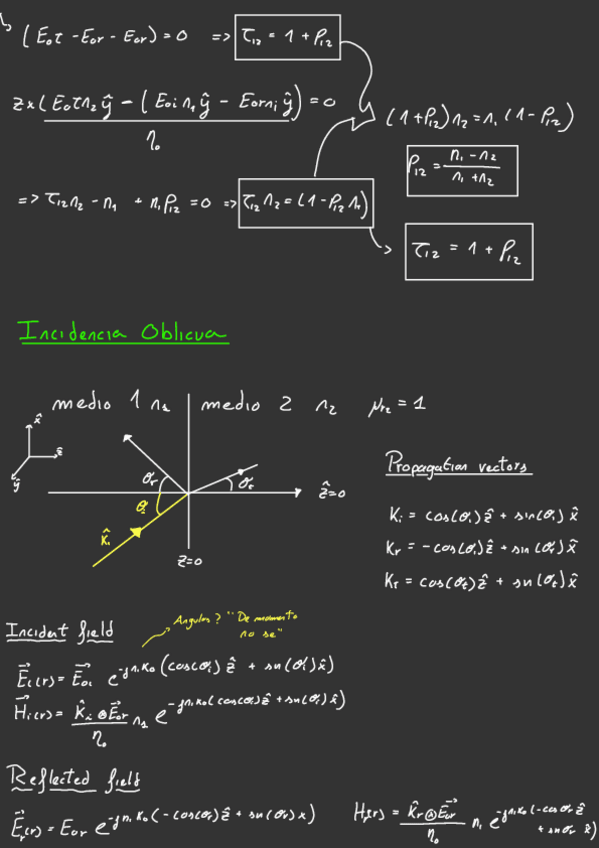 (E₀τ - E₀r - E₀r) = 0 => τ₁₂ = 1 + ρ₁₂
z × (E₀τn₂ ŷ - (E₀i n₁ ŷ - E₀r n₁ ŷ) = 0
η₀
(1+ρ₁₂) n₂ = n₁ (1 - ρ₁₂)
ρ₁₂ = (n₁ - n₂) / (n₁ + n₂)
=> τ₁₂n₂ - n₁ + n₁ρ₁₂ = 0 => τ₁₂ n₂ = (1 - ρ₁₂ n₁)
τ₁₂ = 1 + ρ₁₂
Incidencia Oblicua
medio 1 n₁ medio 2 n₂ μr₂ = 1
x̂
ẑ
ŷ
θr
θt
θi
k̂i
ẑ=0
z=0
Propagation vectors
Ki = cos(θi) ẑ + sin(θi) x̂
Kr = -cos(θi) ẑ + sin(θr) x̂
Kr = cos(θt) ẑ + sin(θt) x̂
Angulos? "De momento
no se"
Incident field
E⃗i(r) = E⃗oi e^-jn₁k₀(cos(θi) ẑ + sin(θi) x̂)
H⃗i(r) = (k̂i ⊗ E⃗or / η₀) n₁ e^-jn₁k₀(cos(θi) ẑ + sin(θi) x̂)
Reflected field
E⃗r(r) = Eor e^-jn₁k₀(-cos(θr) ẑ + sin(θr) x)
Hr(r) = (k̂r ⊗ E⃗or / η₀) n₁ e^-jn₁k₀(-cos θr ẑ
+ sin θr x̂)